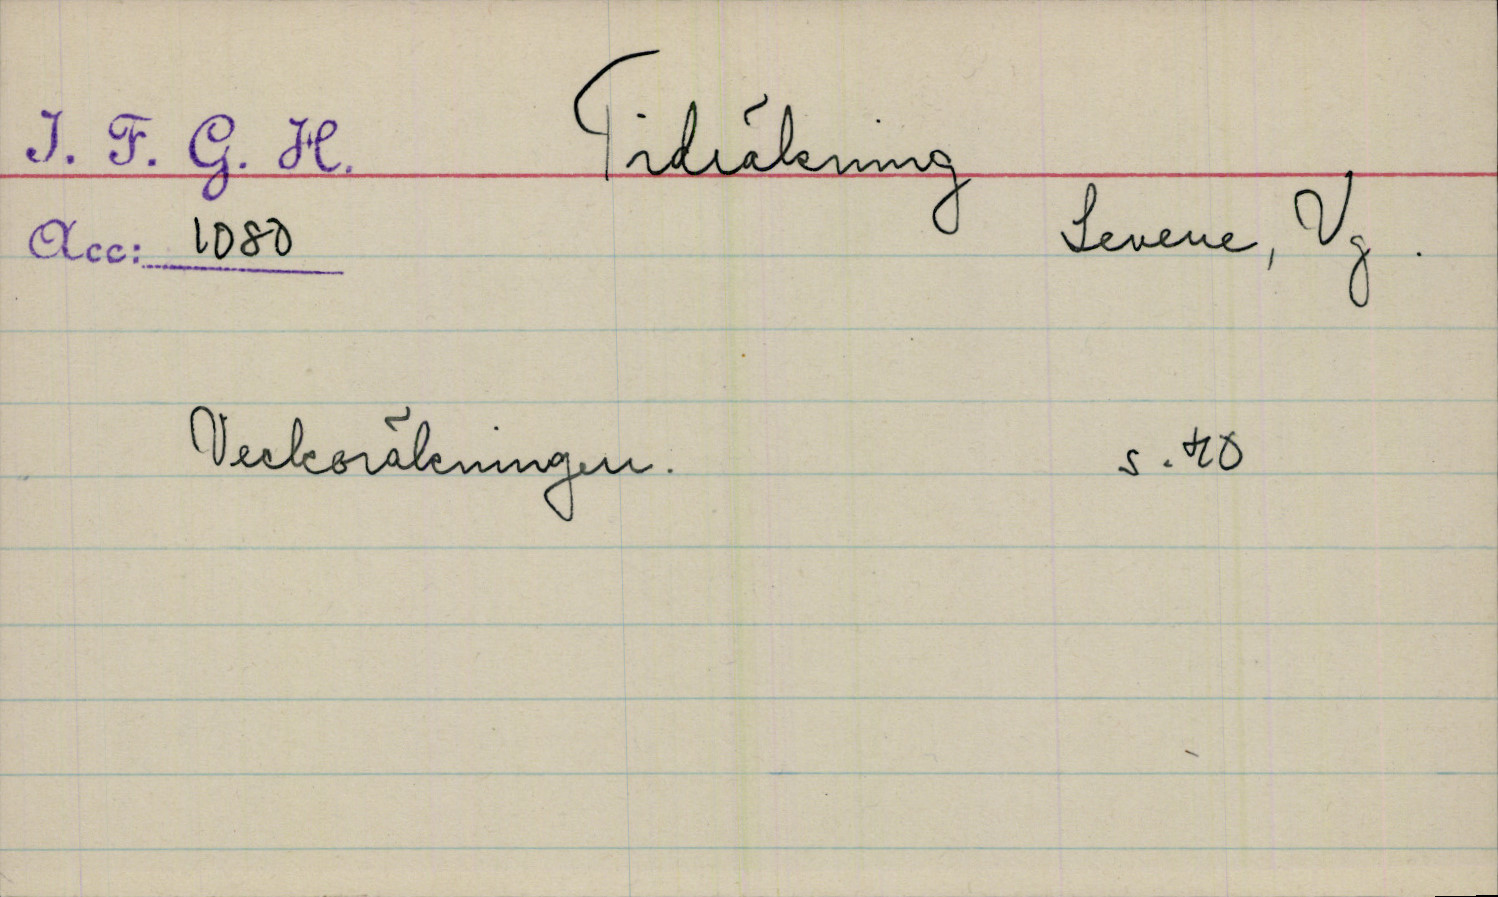 I. F. G. H.
Tidräkning
Acc: 1080
Levene, Vg.
Veckoräkningen. s. 40